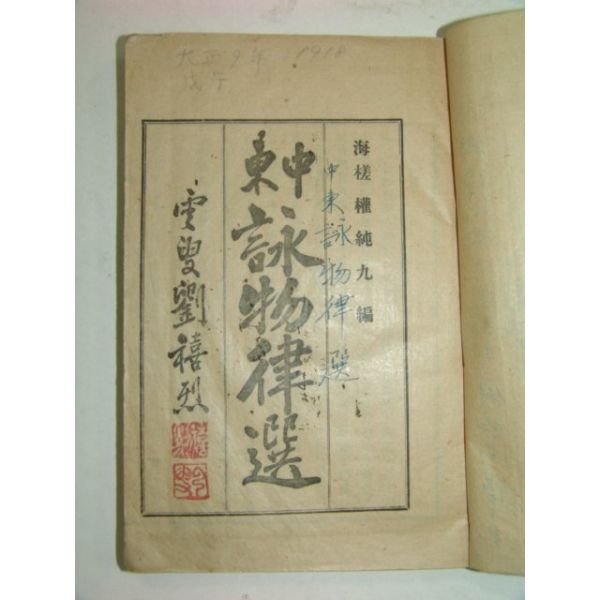 大正9年 1918
戊午
海槎權純九編
中東詠物律選
中東詠物律選
雲叟劉禧烈